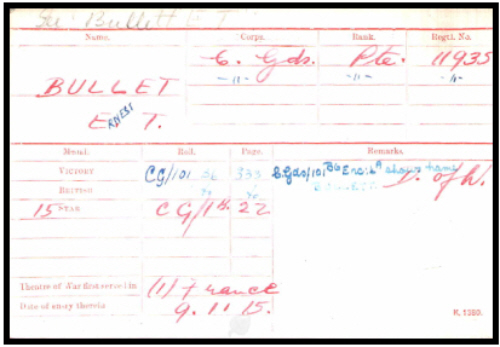 See Bullett E T
Name. Corps. Rank. Regtl. No.
C. Gds. Pte. 11935
BULLET -"- -"- -"-
ERNEST T.
Medal. Roll. Page. Remarks.
VICTORY CG/101 B6 333 C.Gds/101 B6 shows name
BRITISH do do BULLETT. D. of W.
15 STAR CG/1 22
Theatre of War first served in (1) France
Date of entry therein 9.11.15.
K. 1380.